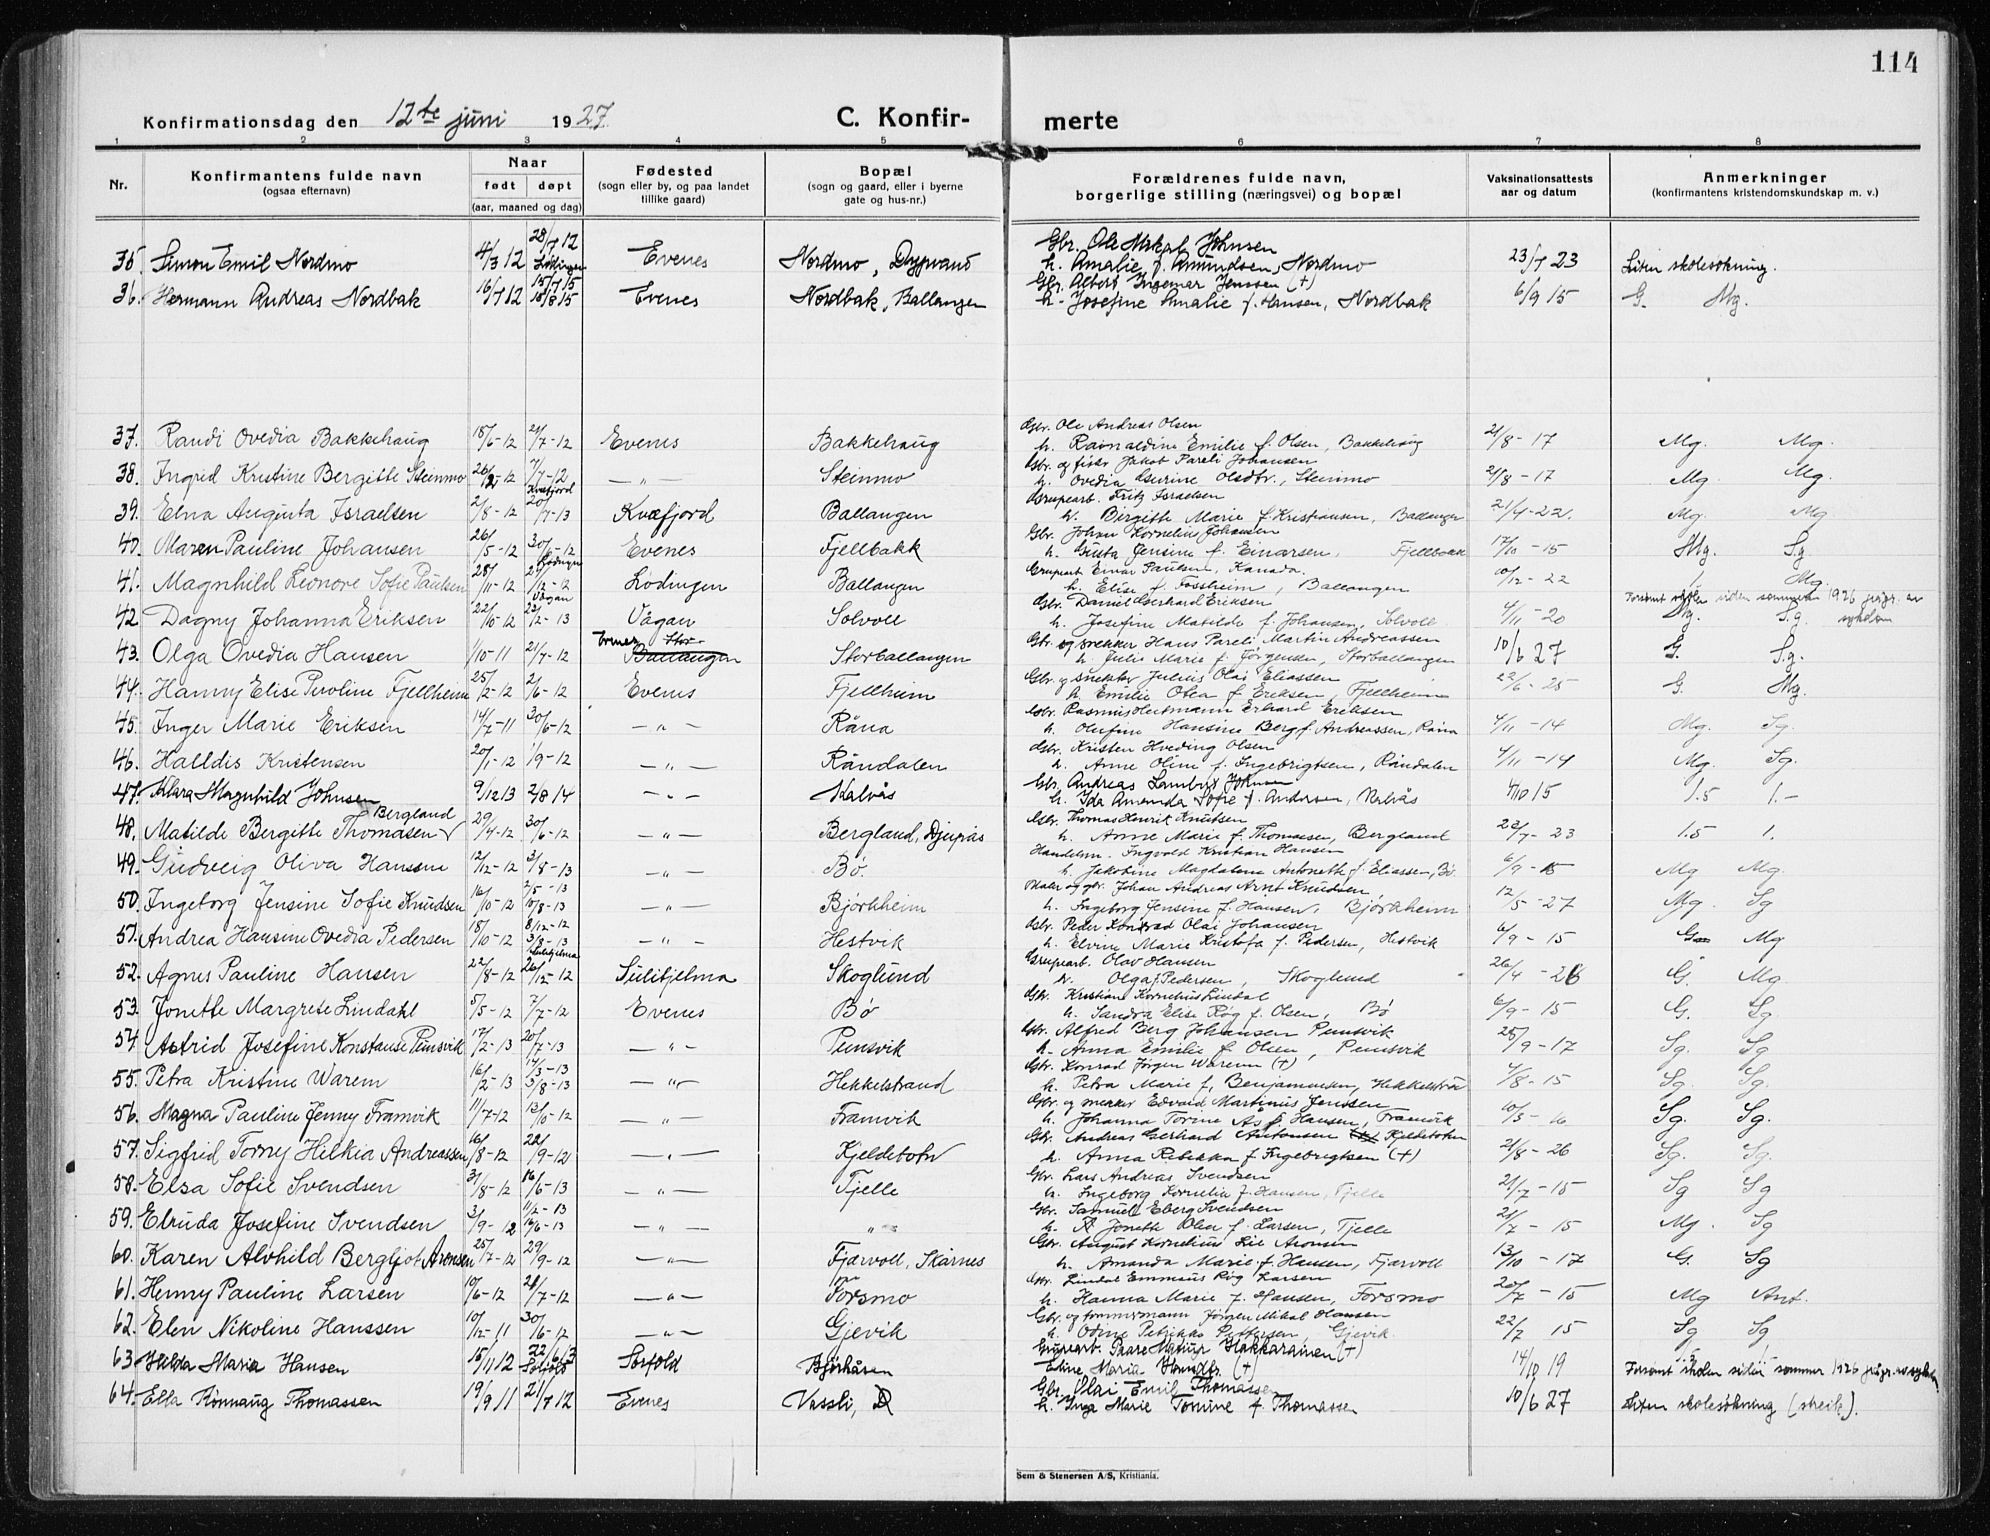 114
Konfirmationsdag den 12te juni 1927. C. Konfirmerte
1 2 3 4 5 6 7 8
Nr. Konfirmantens fulde navn (ogsaa efternavn) Naar født døpt (aar, maaned og dag) Fødested (sogn eller by, og paa landet tillike gaard) Bopæl (sogn og gaard, eller i byerne gate og hus-nr.) Forældrenes fulde navn, borgerlige stilling (næringsvei) og bopæl Vaksinationsattests aar og datum Anmerkninger (konfirmantens kristendomskundskap m. v.)
35. Simon Emil Nordmo 4/3 12 28/7 12 Lødingen Evenes Nordmo, Gbr. Ole Mikal Johnsen
h. Amalie f. Amundsen, Nordmo 23/7 23 Liten skolesøkning.
36. Hermann Andreas Nordbak 16/7 12 15/7 15 18/8 15 Evenes Nordbak, Ballangen Gbr. Albert Ingemar Jenssen (+)
h. Josefine Amalie f. Hansen, Nordbak 6/9 15 G. Mg.
37. Randi Ovedia Bakkehaug 18/6-12 21/7-12 Evenes Bakkehaug Gbr. Ole Andreas Olsen
h. Ragnaldine Emilie f. Olsen, Bakkehaug 21/8-17 Mg. Mg.
38. Ingrid Kristine Bergitte Steinmo 7/7-12 —"— Steinmo Gbr. og fisker Jakob Pareli Johansen
h. Ovedia Olsdtr., Steinmo 21/8-17 Mg. Mg.
39. Elna Augusta Israelsen 2/8-12 Kvæfjord 20/7-13 Kvæfjord Ballangen Grupearb. Fritz Israelsen
h. Birgitte Marie f. Kristiansen, Ballangen 21/4-22 Mg. Mg
40. Maren Pauline Johansen 26/5-12 30/6-12 Evenes Fjellbakk Gbr. Johan Kornelius Johansen
h. Gusta Jensine f. Einarsen, Fjellbakk 17/10-15 Mg. Sg.
41. Magnhild Leonore Sofie Paulsen 28/11-12 Lødingen Lødingen Ballangen Grupearb. Einar Paulsen, Kanada.
h. Elise f. Fossheim, Ballangen 10/12-22 Mg.
42. Dagny Johanna Eriksen 22/10-12 Vågan 23/2-13 Vågan Solvoll Gbr. Daniel Gerhard Eriksen
h. Josefine Matilde f. Johansen, Solvoll 4/11-20 Forsømt skolen siden sommeren 1926 pågr. av sykdom Sg.
43. Olga Ovedia Hansen /10-11 21/7-12 Evenes Stor-Ballangen Storballangen Gbr. og snekker Hans Pareli Martin Andreassen
h. Julie Marie f. Jørgensen, Storballangen 10/6 27 G. Sg.
44. Hanny Elise Peroline Fjellheim 25/2-12 2/6-12 Evenes Fjellheim Gbr. og snekker Julius Olai Eliassen
h. Emilie Olea f. Eriksen, Fjellheim 22/6-25 G. Mg.
45. Inger Marie Eriksen 14/7-11 30/6-12 —"— Råna Gbr. Rasmus Hertmann Erhard Eriksen
h. Olufine Hansine Berg f. Andreassen, Råna 4/11-14 Mg. Sg.
46. Halldis Kristensen 20/1-12 1/9-12 —"— Råndalen Gbr. Kristen Hveding Olsen
h. Anne Oline f. Ingebrigtsen, Råndalen 4/11-14 Mg. Sg.
47. Klara Magnhild Johnsen 9/12 13 2/8 14 —"— Kalvås Gbr. Andreas Lambert Johnsen
h. Ida Amanda Sofie f. Andersen, Kalvås 4/10 15 1.5 1.—
48. Matilde Bergitte Thomasen Bergland 29/4-12 30/6-12 —"— Bergland, Djupås Gbr. Thomas Henrik Knutsen
h. Anne Marie f. Thomasen, Bergland 23/7-23 1.5 1.
49. Gudveig Oliva Hansen 12/12-12 3/8-13 —"— Bø. Handelsm. Ingvold Kristian Hansen
h. Jakobine Magdalena Antonette f. Eliassen, Bø. 6/9-15 Mg Mg.
50. Ingeborg Jensine Sofie Knudsen 16/10-12 2/5-13 10/8-13 —"— Bjørkheim Maler og gbr. Johan Andreas Arnt Knudsen,
h. Ingeborg Jensine f. Hansen, Bjørkheim 12/5-27 Mg. Sg
51. Andrea Hansine Ovedia Pedersen 18/10-12 8/12-12 3/8-13 —"— Hestvik Gbr. Peder Konrad Olai Johansen
h. Elvine Marie Kristofa f. Pedersen, Hestvik 6/9-15 G Mg
52. Agnes Pauline Hansen 22/8-12 Sulitjelma 26/12-12 Sulitjelma Skoglund Grupearb. Olav Hansen
h. Olga f. Pedersen, Skoglund 26/4-26 G. Mg.
53. Jonette Margrete Lindahl 5/5-12 7/7-12 Evenes Bø Gbr. Kristian Kornelius Lindal
h. Sandra Elise Røg f. Olsen, Bø 6/9-15 G. Sg.
54. Astrid Josefine Konstanse Pumsvik 17/2-13 20/7-13 —"— Pumsvik Gbr. Alfred Berg Johansen Pumsvik
h. Anna Emilie f. Olsen, Pumsvik 25/9-17 Sg. Sg.
55. Petra Kristine Warem 16/2-13 14/3-13 3/8-13 —"— Hekkelstrand Gbr. Konrad Jørgen Warem (+)
h. Petra Marie f. Benjaminsen, Hekkelstra 4/8-15 Sg. Sg.
56. Magna Pauline Jenny Framvik 11/7-12 13/10-12 —"— Framvik Gbr. og snekker Edvard Martinus Jenssen
h. Johanna Torine Ås f. Hansen, Framvik 10/5-16 Sg. Sg.
57. Sigfrid Torny Hilkia Andreassen 16/8-12 22/9-12 —"— Kjeldebotn Gbr. Andreas Gerhard Antonsen Kjeldebotn
h. Anna Rebekka f. Ingebrigtsen (+) 21/8-26 Sg. Sg.
58. Elsa Sofie Svendsen 31/8-12 16/6-13 —"— Tjelle Gbr. Lars Andreas Svendsen
h. Ingeborg Kornelia f. Hansen, Tjelle 21/7-15 Sg Sg
59. Elruda Josefine Svendsen 3/9-12 11/2-13 16/6-13 —"— " Gbr. Samuel Eberg Svendsen
h. Jonette Olea f. Larsen, Tjelle 21/7-15 Mg. Sg
60. Karen Alvhild Bergljot Aronsen 25/7-12 29/9-12 —"— Fjærvoll, Skarnes Gbr. August Kornelius Lie Aronsen
h. Amanda Marie f. Hansen, Fjærvoll 13/10-17 G. Sg
61. Henny Pauline Larsen 10/6-12 21/7-12 —"— Forsmo Gbr. Lindal Emmaus Røg Larsen
h. Hanna Marie f. Hansen, Forsmo 20/7-15 Mg Ant.
62. Elen Nikoline Hanssen 10/12-11 30/6-12 —"— Gjevik Gbr. og tømmermann Jørgen Mikal Hansen
h. Odine Petrikke Pettersen, Gjevik. 22/7 15 Sg Sg
63 Hilda Maria Hansen 15/11 12 22/6 13 Sørfold Sørfold Bjørkåsen Grupearb. Hakkarainen (+)
Eline Maria Hansdtr. (+) 14/10 19 Forsømt skolen siden sommer 1926 pågr. av sykdom
64. Ella Rønnaug Thomassen 19/9 11 21/7 12 Evenes Vassli, Gbr. Olai Emil Thomassen
h. Inga Marie Tomine f. Thomassen 10/6 27 Liten skolesøkning (streik).
Sem & Stenersen A/S, Kristiania.